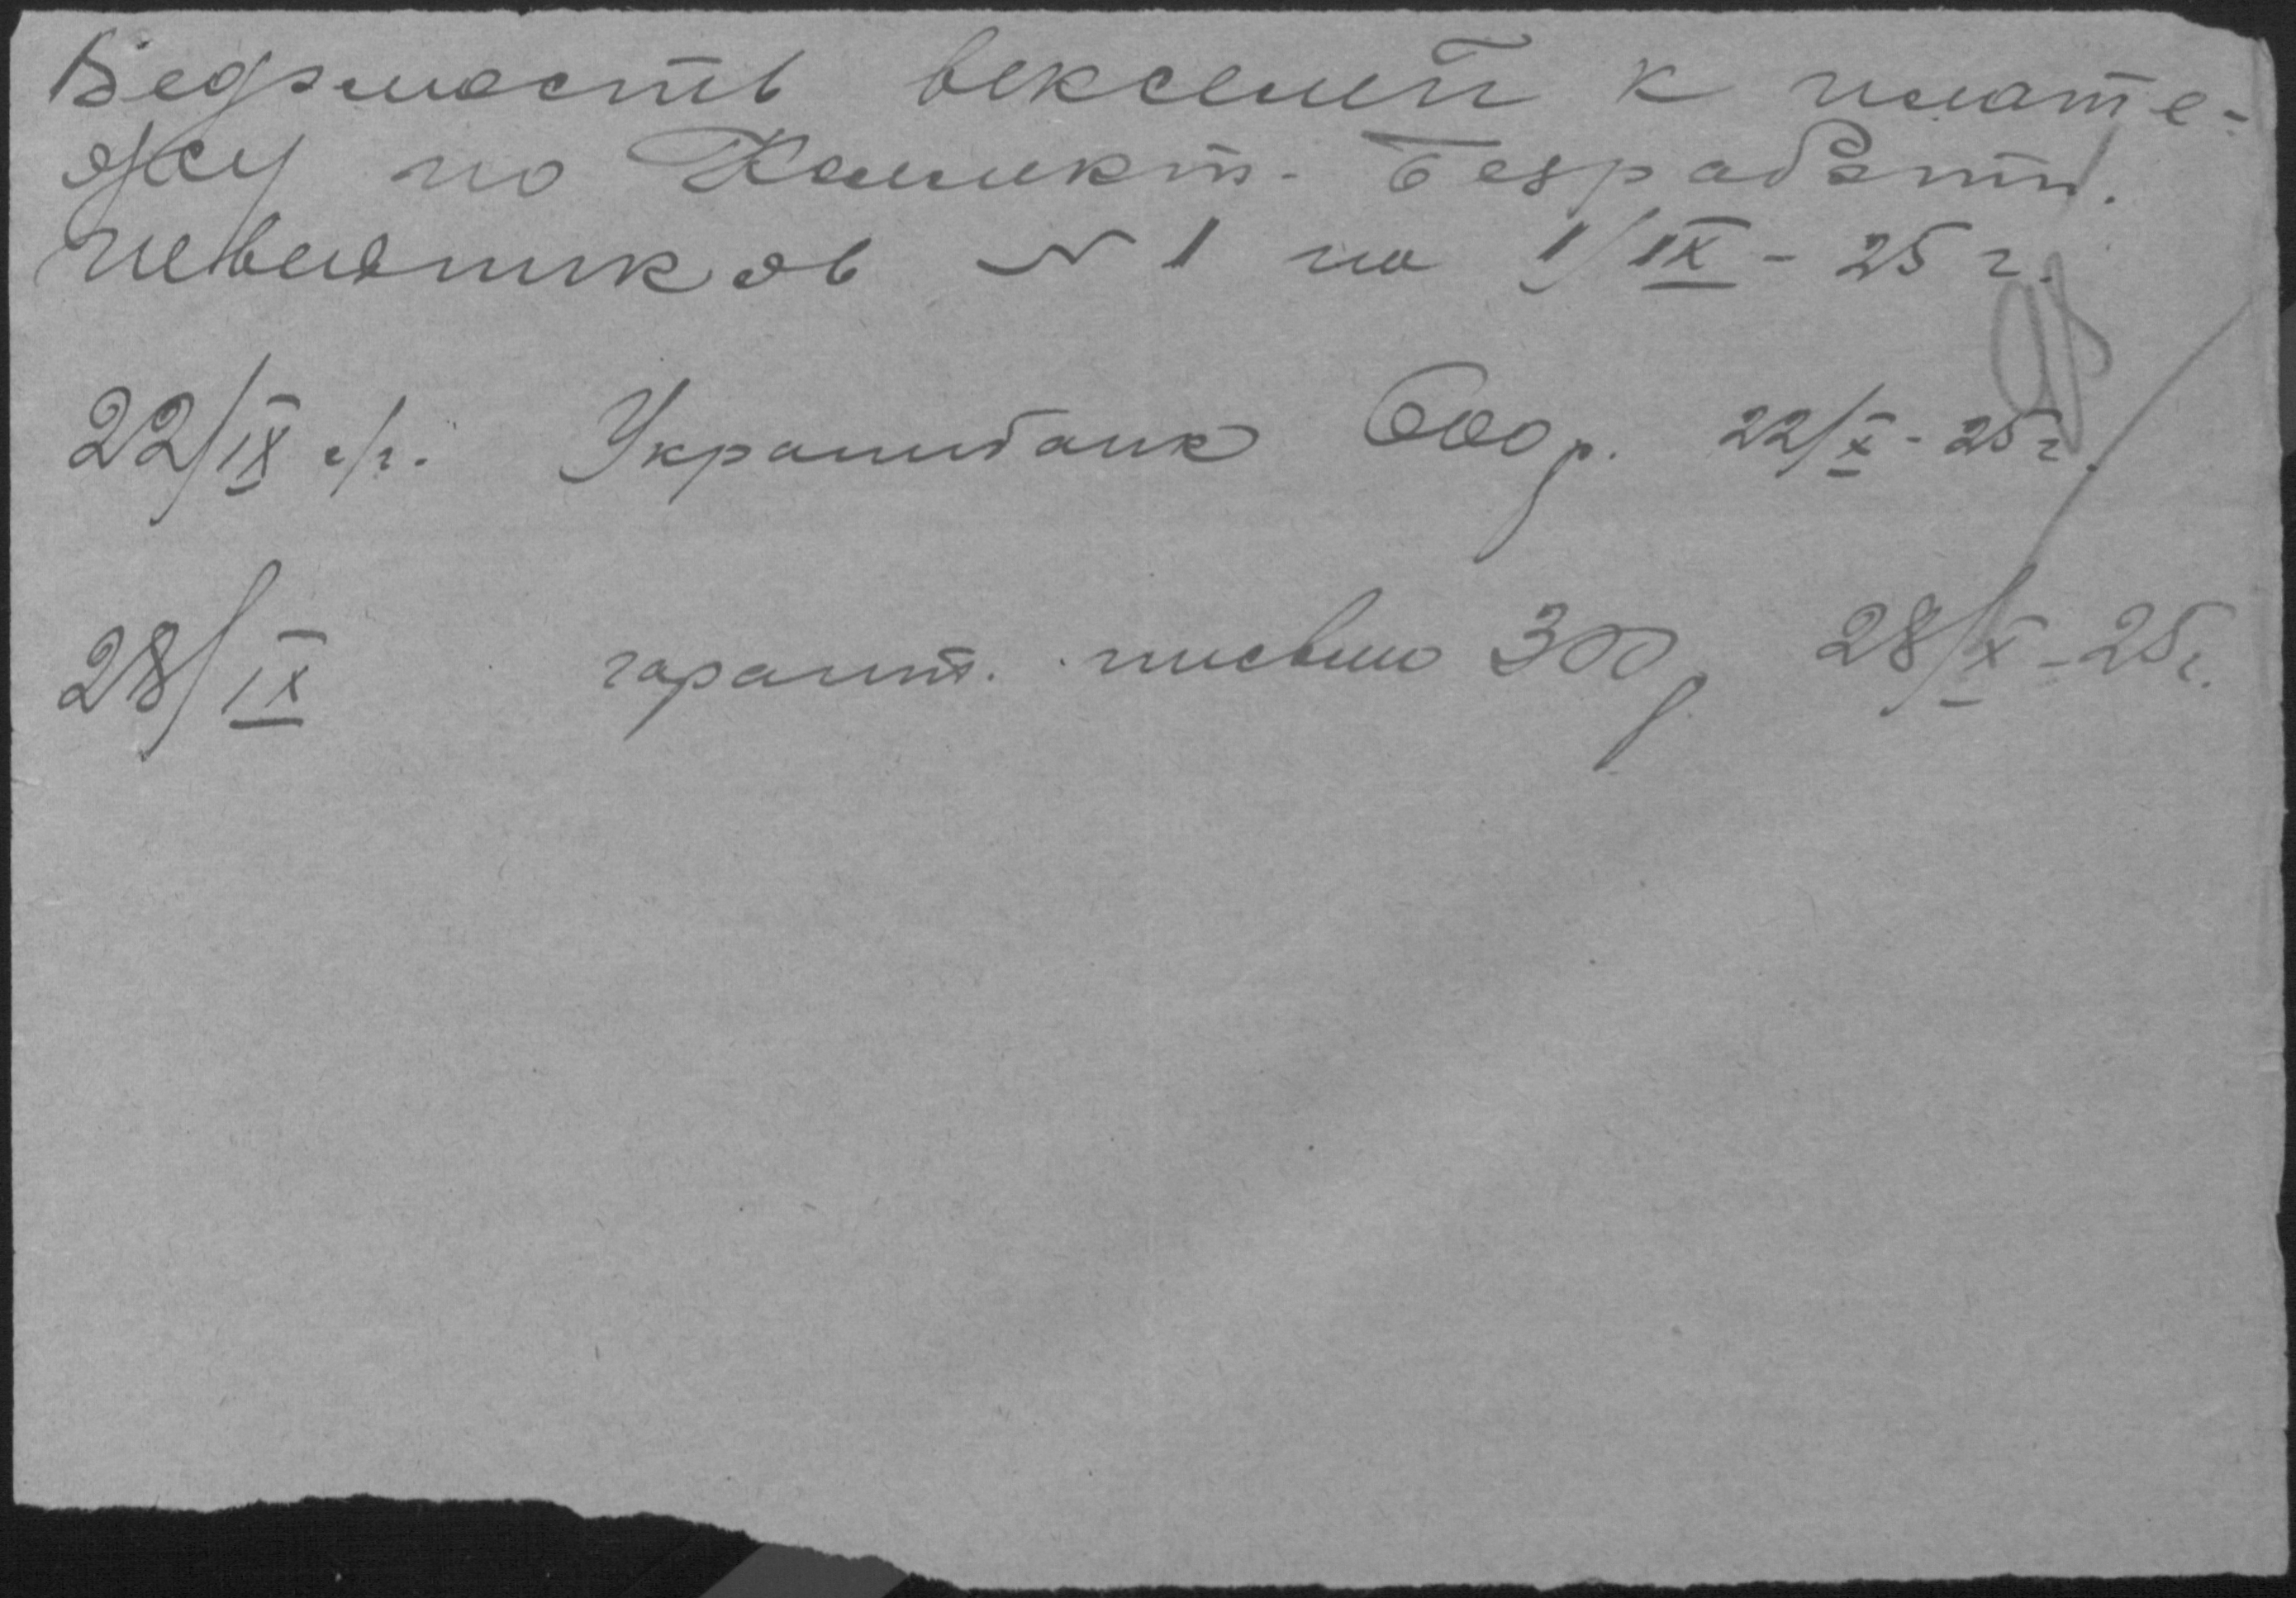 Ведомость векселей к плате-
жу по Коллект. безработн.
пивников № 1 на 1/IX - 25 г.
22/IX с/г. Украинбанк 600 р. 22/X - 25 г.
28/IX гарант. письмо 300 р 28/X - 25 г.